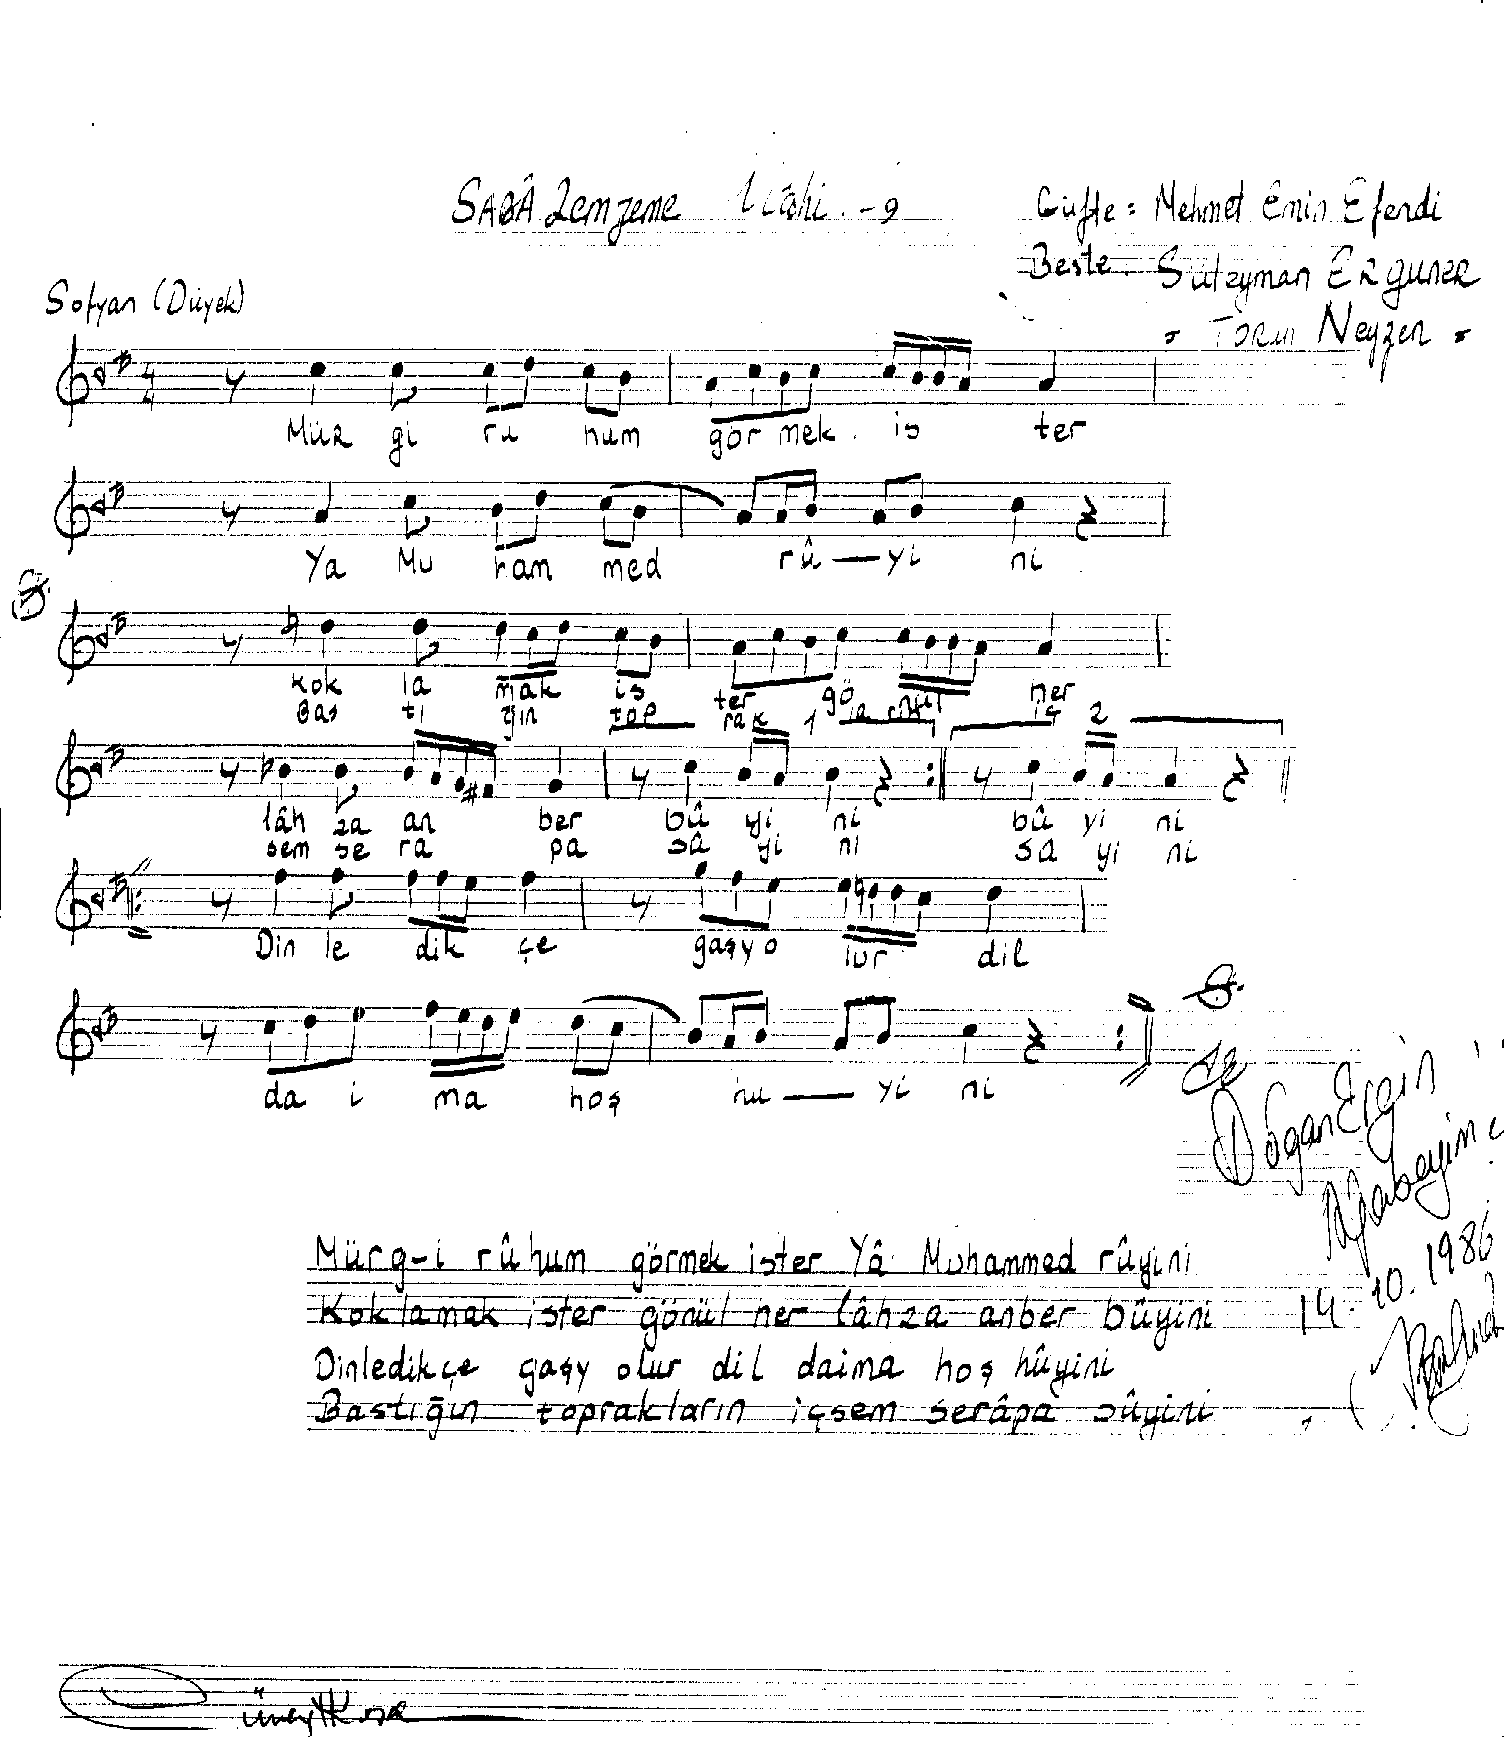 SABÂ Zemzeme İlâhi - 9
Güfte = Mehmet Emin Efendi
Beste. Süleyman ERguneR
" Torun Neyzen "
Sofyan (Düyek)
4/4
Mür gi ru hum gör mek is ter
Ya Mu ham med rû — yi ni
kok la mak is ter gö nül her
Bas tı ğın top rak la rın iç
1 2
lâh za an ber bû yi ni bû yi ni
sem se ra pa sâ yi ni sa yi ni
Din le dik çe gaşy o lur dil
da i ma hoş hu — yi ni
Doğan Ergin
Ağabeyime
14.10.1986
Mürg-i rûhum görmek ister Yâ Muhammed rûyini
Koklamak ister gönül her lâhza anber bûyini
Dinledikçe gaşy olur dil daima hoş hûyini
Bastığın toprakların içsem serâpa sûyini